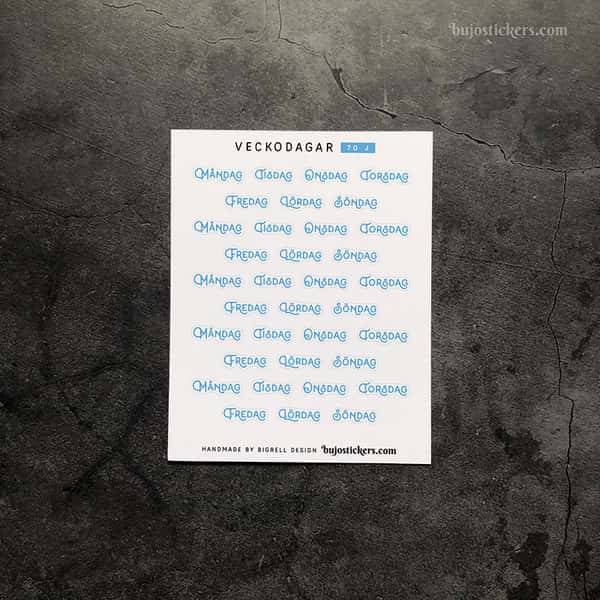 bujostickers.com
VECKODAGAR 70 J
Måndag Tisdag Onsdag Torsdag
Fredag Lördag Söndag
Måndag Tisdag Onsdag Torsdag
Fredag Lördag Söndag
Måndag Tisdag Onsdag Torsdag
Fredag Lördag Söndag
Måndag Tisdag Onsdag Torsdag
Fredag Lördag Söndag
Måndag Tisdag Onsdag Torsdag
Fredag Lördag Söndag
HANDMADE BY BIGRELL DESIGN bujostickers.com